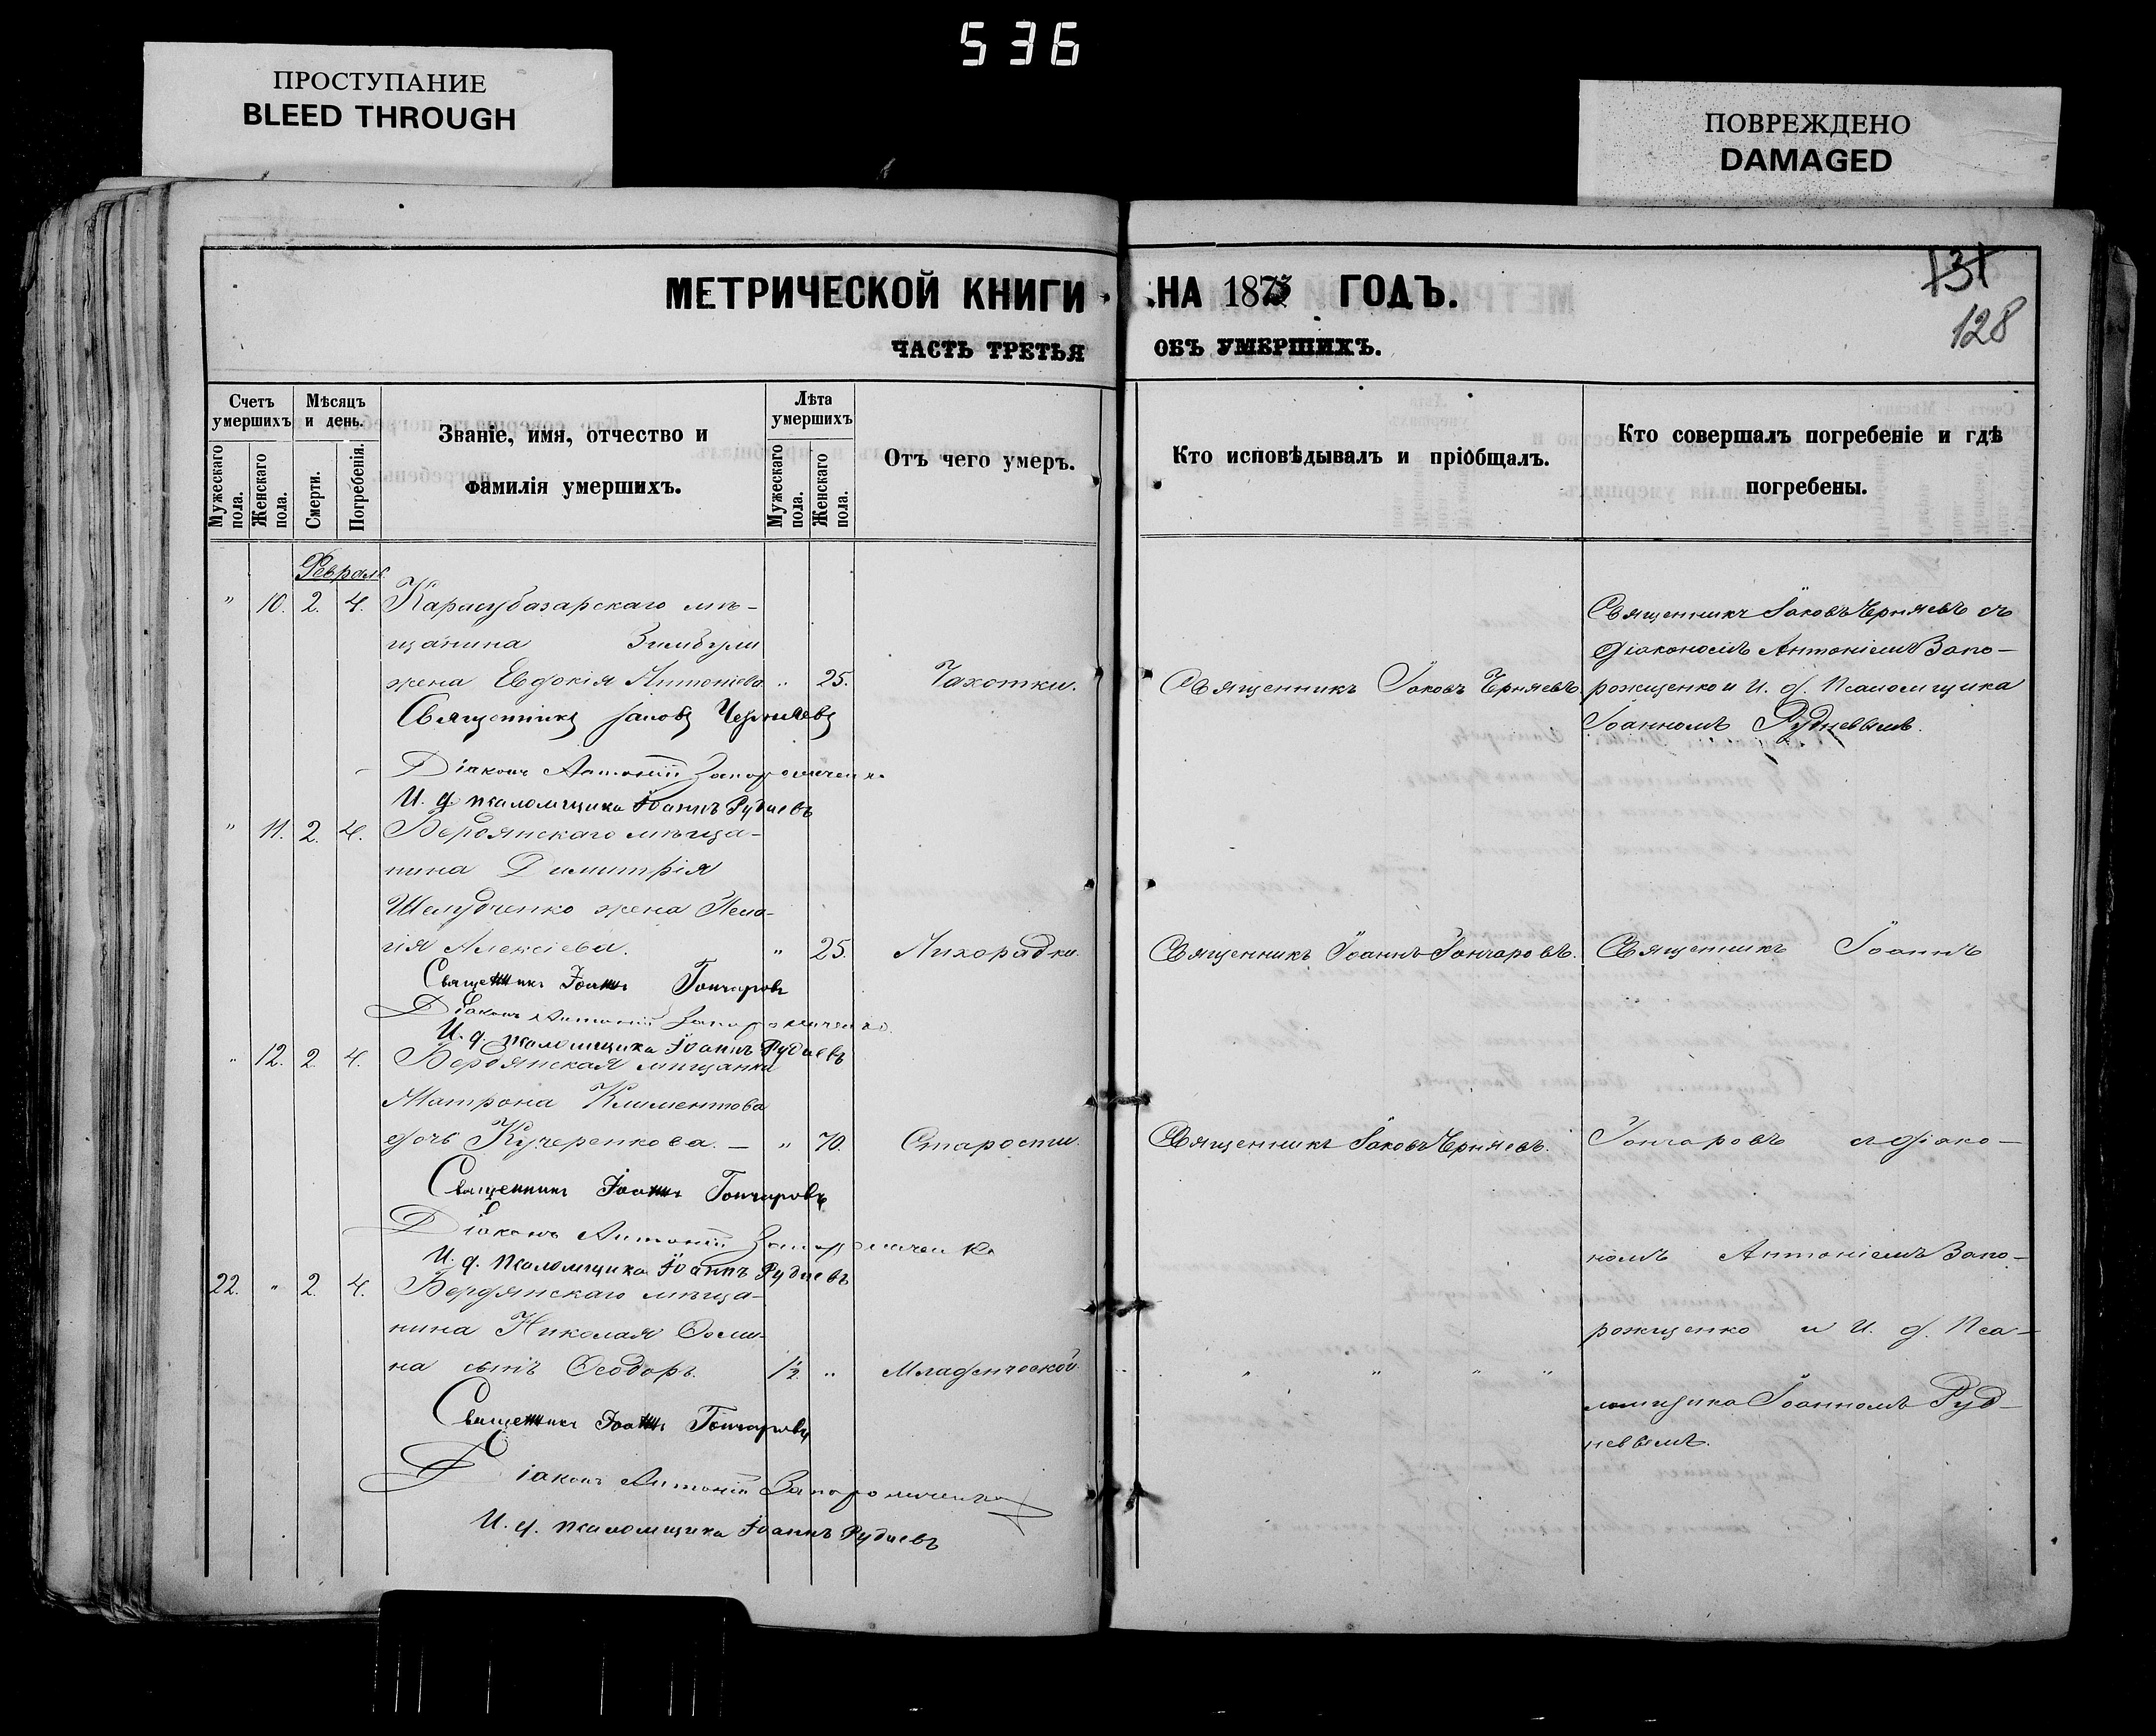 536
ПРОСТУПАНИЕ
BLEED THROUGH
ПОВРЕЖДЕНО
DAMAGED
131
128
МЕТРИЧЕСКОЙ КНИГИ НА 1873 ГОДЪ.
ЧАСТЬ ТРЕТЬЯ ОБЪ УМЕРШИХЪ.
Счетъ умершихъ
Мужескаго пола.
Женскаго пола.
Мѣсяцъ и день.
Смерти.
Погребенія.
Званіе, имя, отчество и
фамилія умершихъ.
Лѣта умершихъ
Мужескаго пола.
Женскаго пола.
Отъ чего умеръ.
Кто исповѣдывалъ и пріобщалъ.
Кто совершалъ погребеніе и гдѣ
погребены.
Февраль
" 10. 2. 4. Карасубазарскаго мѣ-
щанина
жена Евдокія Антоніева " 25. Чахотки. Священникъ Іаковъ Черняевъ
Священникъ Іаковъ Черняевъ съ
діакономъ Антоніемъ Запо-
рожценко и И. д. Псаломщика
Іоанномъ Рудневымъ.
Священникъ Іаковъ Черняевъ
Діаконъ Антоній Запорожченко
И. д. псаломщика Іоаннъ Рудневъ
" 11. 2. 4. Бердянскаго мѣща-
нина Димитрія
Шелудченко жена Пела-
гія Алексіева. " 25. Лихорадки. Священникъ Іоаннъ Гончаровъ. Священникъ Іоаннъ
Священникъ Іоаннъ Гончаровъ
Діаконъ Антоній Запорожченко
И. д. псаломщика Іоаннъ Рудневъ
" 12. 2. 4. Бердянская мѣщанка
Матрона Климентова
дочь Кучеренкова. — " 70. Старости. Священникъ Іаковъ Черняевъ. Гончаровъ съ діако-
Священникъ Іоаннъ Гончаровъ
Діаконъ Антоній Запорожченко
номъ Антоніемъ Запо-
И. д. псаломщика Іоаннъ Рудневъ
22. " 2. 4. Бердянскаго мѣща-
нина Николая
рожценко и И. д. Пса-
сынъ Ѳеодоръ. 1½ " Младенческой " " " "
ломщика Іоанномъ Руд-
невымъ.
Священникъ Іоаннъ Гончаровъ
Діаконъ Антоній Запорожченко
И. д. псаломщика Іоаннъ Рудневъ